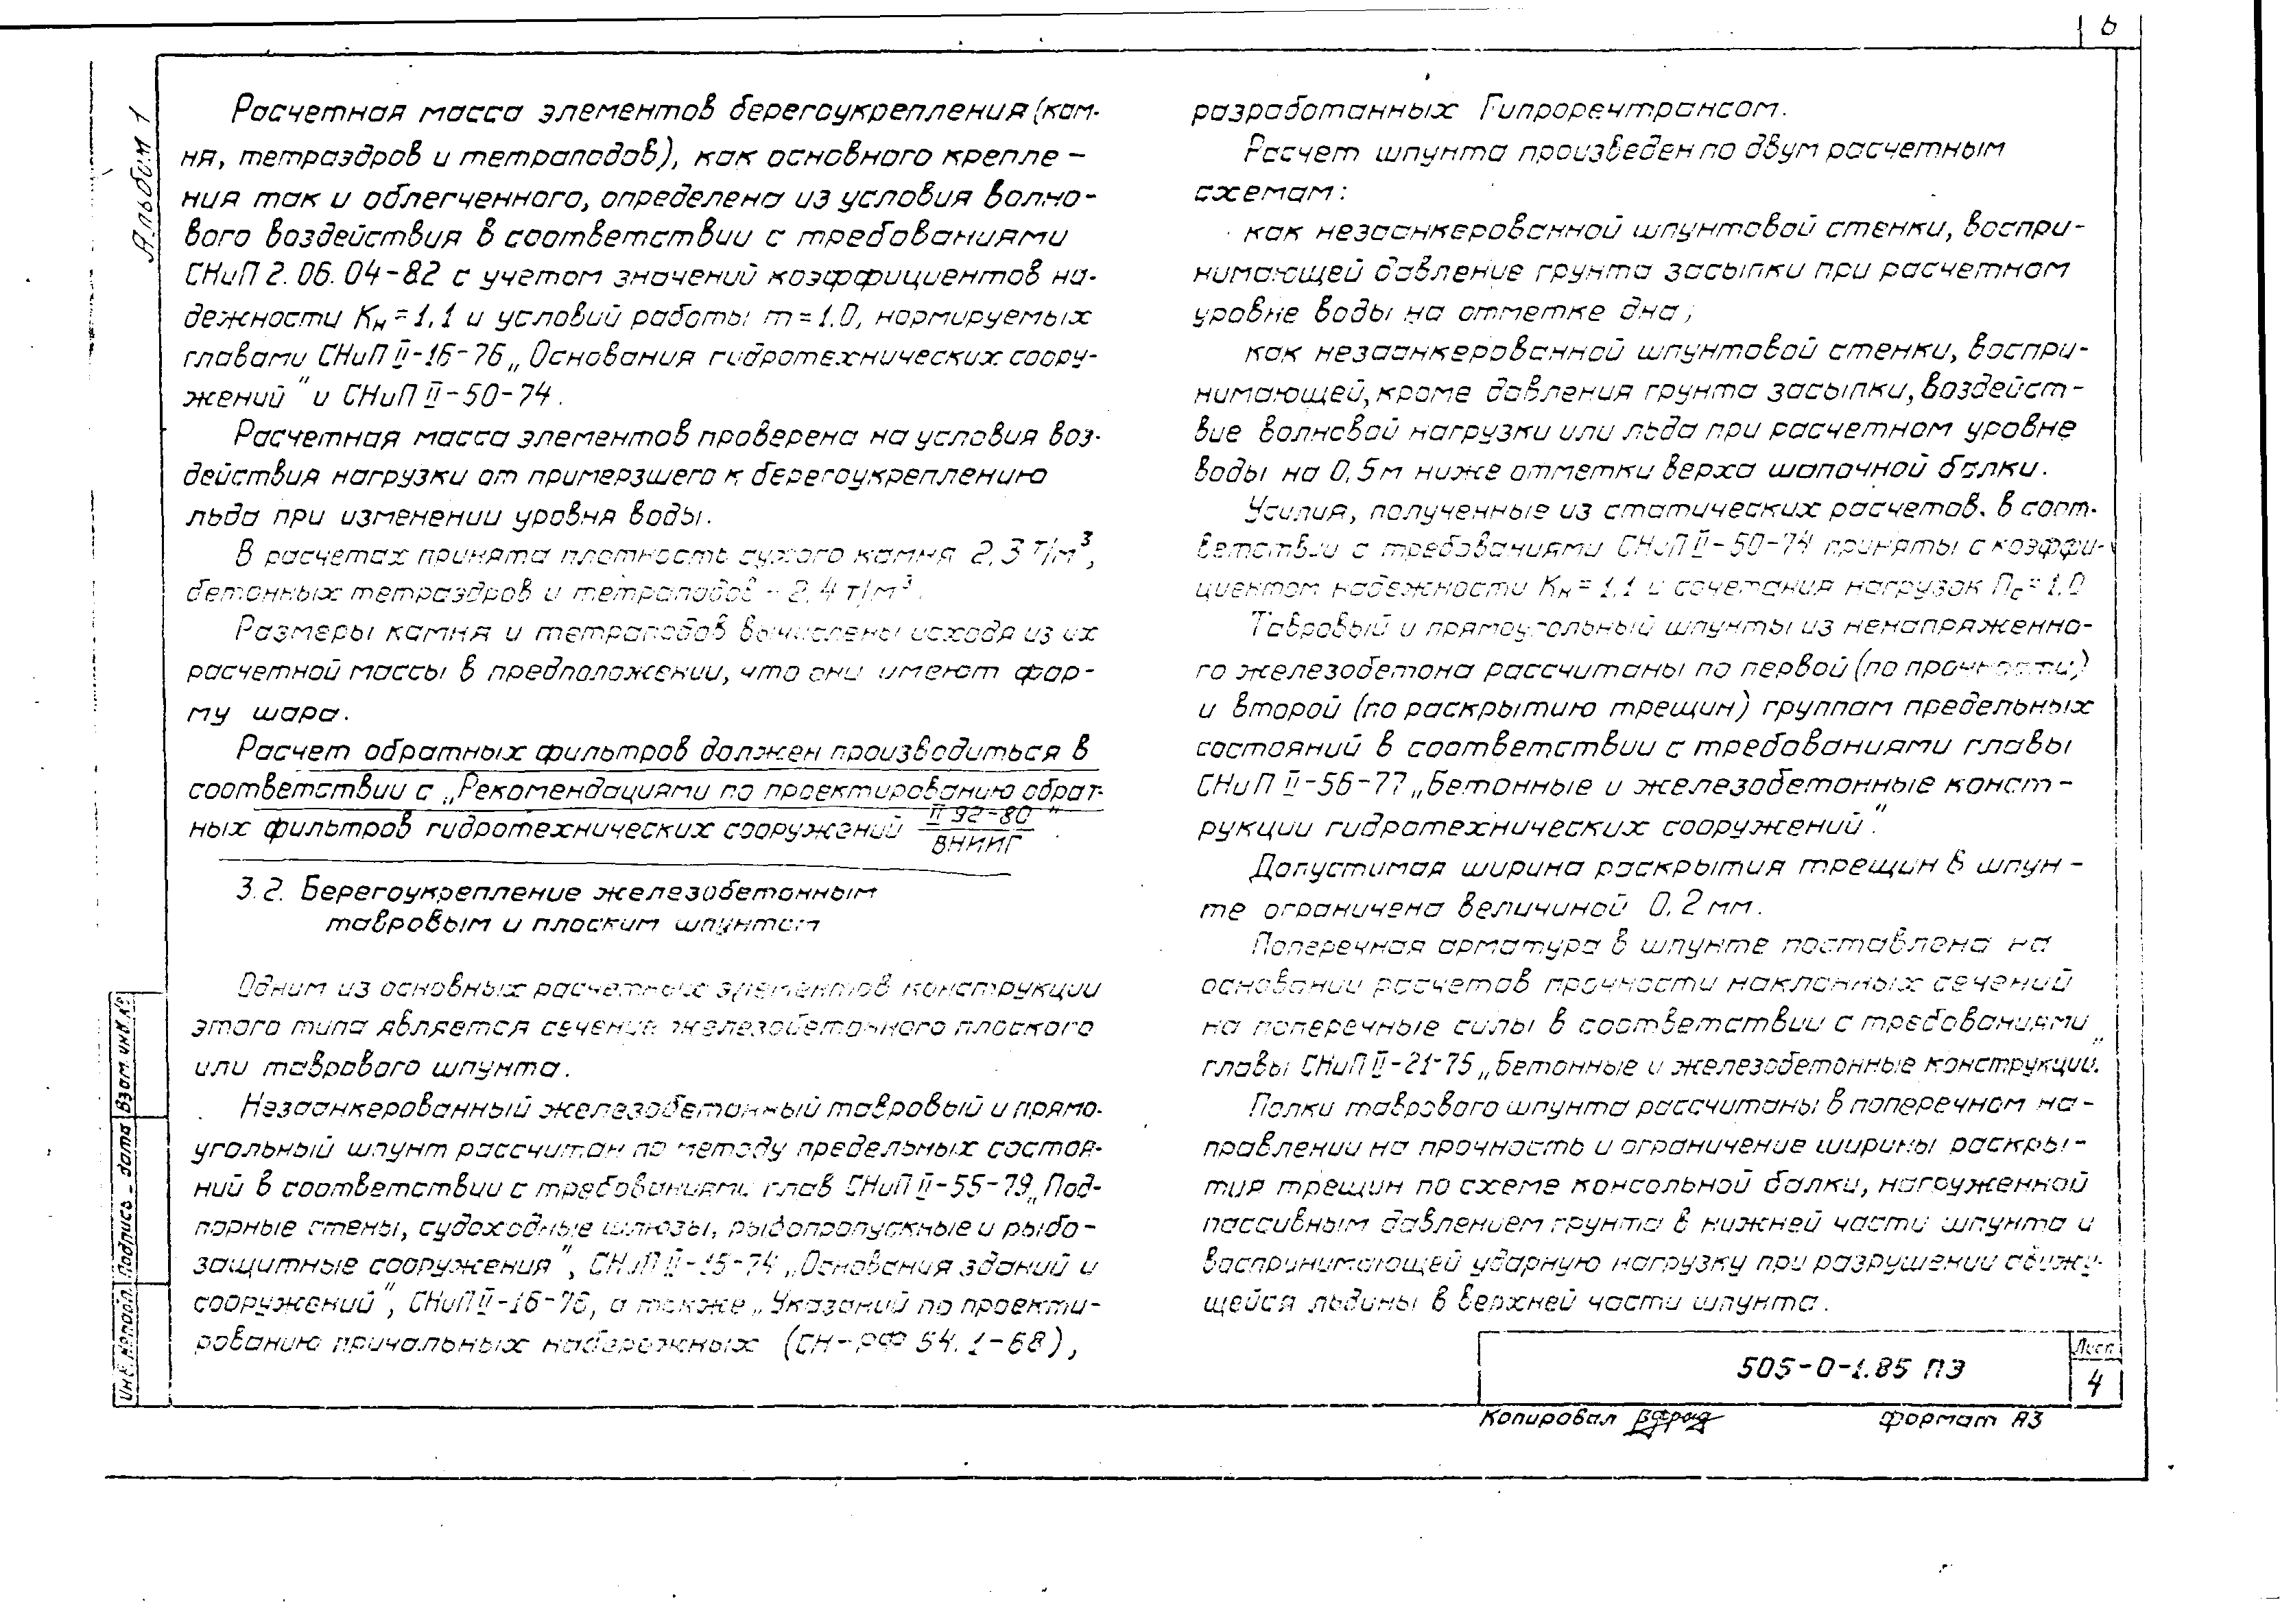 6
Альбом 1
Расчетная масса элементов берегоукрепления (кам-
ня, тетраэдров и тетраподов), как основного крепле-
ния так и облегченного, определена из условия волно-
вого воздействия в соответствии с требованиями
СНиП 2.06.04-82 с учетом значений коэффициентов на-
дежности Кн = 1.1 и условий работы m = 1.0, нормируемых
главами СНиП II-16-76 „Основания гидротехнических соору-
жений" и СНиП II-50-74.
Расчетная масса элементов проверена на условия воз-
действия нагрузки от примерзшего к берегоукреплению
льда при изменении уровня воды.
В расчетах принята плотность сухого камня 2,3 т/м³,
бетонных тетраэдров и тетраподов - 2,4 т/м³.
Размеры камня и тетраподов вычислены исходя из их
расчетной массы в предположении, что они имеют фор-
му шара.
Расчет обратных фильтров должен производиться в
соответствии с „Рекомендациями по проектированию обрат-
ных фильтров гидротехнических сооружений П 92-80"
ВНИИГ .
3.2. Берегоукрепление железобетонным
тавровым и плоским шпунтом
Одним из основных расчетных элементов конструкции
этого типа является сечение железобетонного плоского
или таврового шпунта.
Незаанкерованный железобетонный тавровый и прямо-
угольный шпунт рассчитан по методу предельных состоя-
ний в соответствии с требованиями глав СНиП II-55-79 „Под-
порные стены, судоходные шлюзы, рыбопропускные и рыбо-
защитные сооружения", СНиП II-15-74 „Основания зданий и
сооружений", СНиП II-16-76, а также „Указаний по проекти-
рованию причальных набережных (СН-РФ 54.1-68),
разработанных Гипроречтрансом.
Расчет шпунта произведен по двум расчетным
схемам:
как незаанкерованной шпунтовой стенки, воспри-
нимающей давление грунта засыпки при расчетном
уровне воды на отметке дна;
как незаанкерованной шпунтовой стенки, воспри-
нимающей, кроме давления грунта засыпки, воздейст-
вие волновой нагрузки или льда при расчетном уровне
воды на 0,5м ниже отметки верха шапочной балки.
Усилия, полученные из статических расчетов, в соот-
ветствии с требованиями СНиП II-50-74 приняты с коэффи-
циентом надежности Кн = 1.1 и сочетания нагрузок Пс = 1.0
Тавровый и прямоугольный шпунты из ненапряженно-
го железобетона рассчитаны по первой (по прочности)
и второй (по раскрытию трещин) группам предельных
состояний в соответствии с требованиями главы
СНиП II-56-77 „Бетонные и железобетонные конст-
рукции гидротехнических сооружений".
Допустимая ширина раскрытия трещин в шпун-
те ограничена величиной 0,2 мм.
Поперечная арматура в шпунте поставлена на
основании расчетов прочности наклонных сечений
на поперечные силы в соответствии с требованиями
главы СНиП II-21-75 „Бетонные и железобетонные конструкции".
Полки таврового шпунта рассчитаны в поперечном на-
правлении на прочность и ограничение ширины раскры-
тия трещин по схеме консольной балки, нагруженной
пассивным давлением грунта в нижней части шпунта и
воспринимающей ударную нагрузку при разрушении движу-
щейся льдины в верхней части шпунта.
Инв. № подл. Подпись и дата Взам. инв. №
505-0-1.85 ПЗ
Лист
4
Копировал
Формат А3